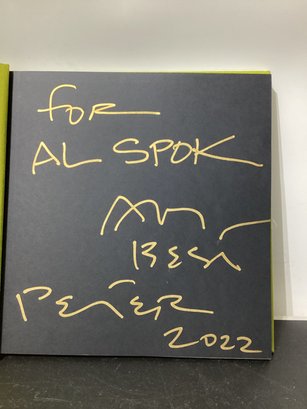 FOR
AL SPOK
All
BEST
PETER
2022